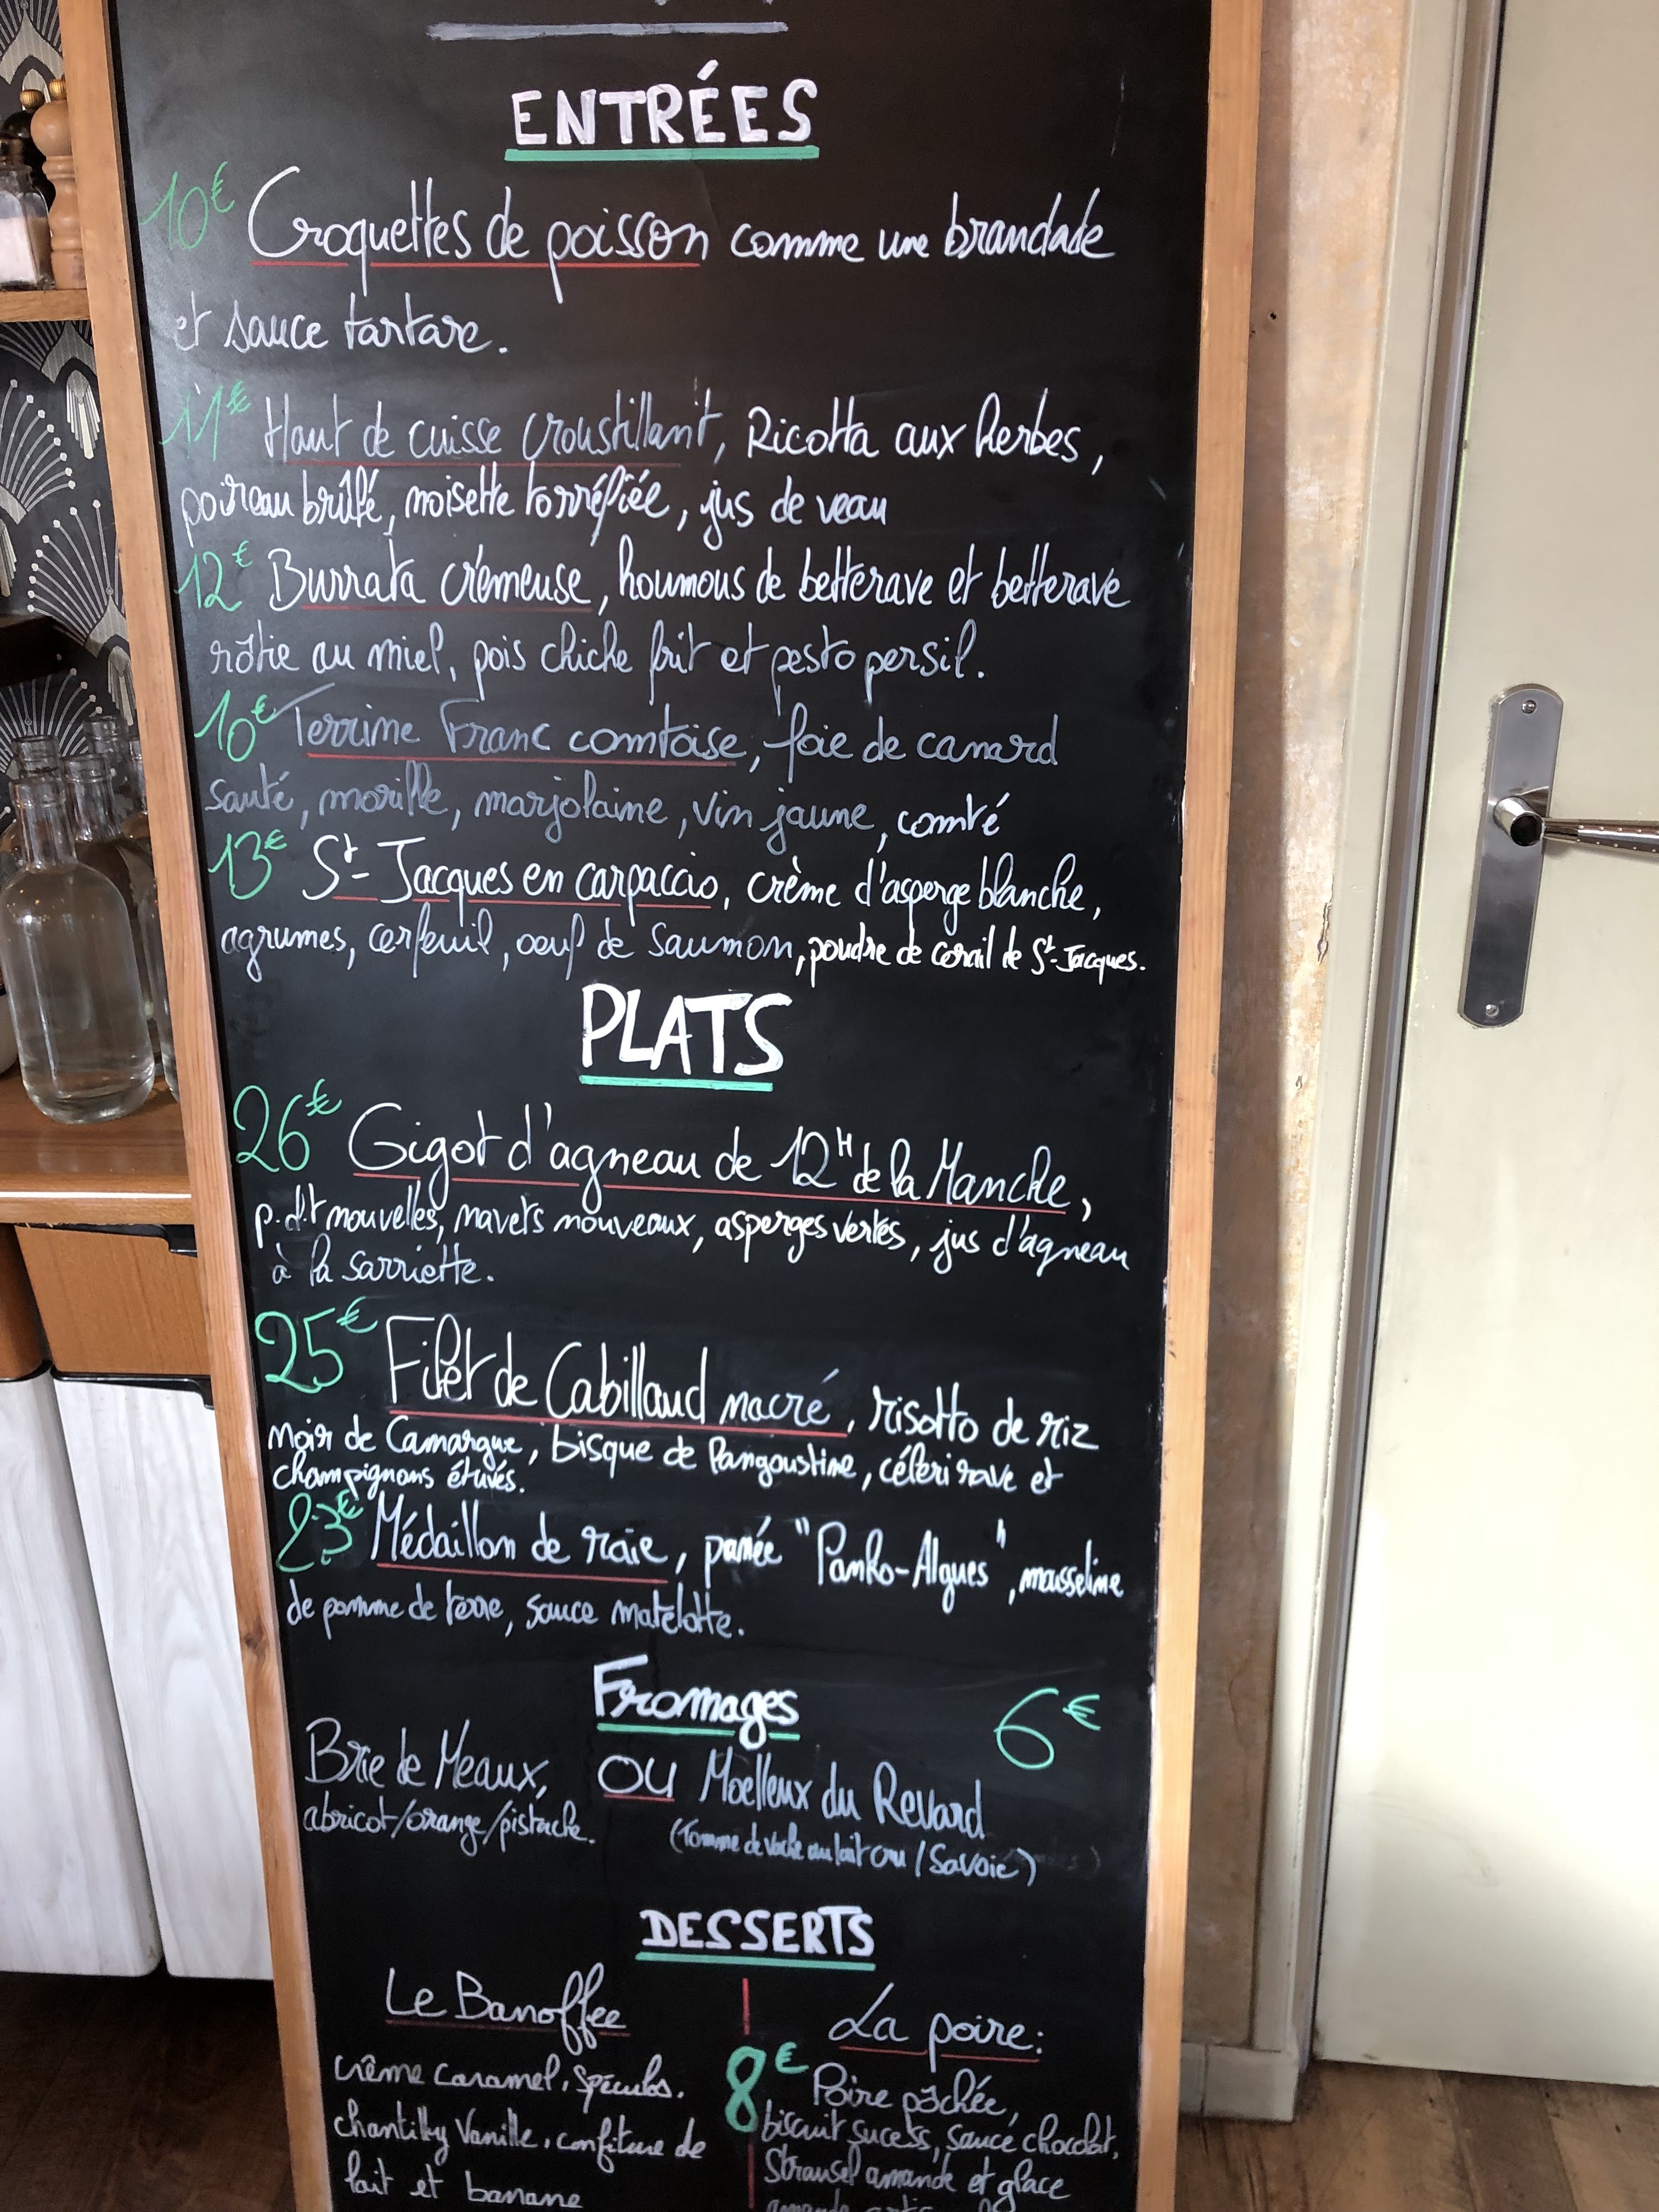 ENTRÉES
10€ Croquettes de poisson comme une brandade
et sauce tartare.
11€ Haut de cuisse croustillant, Ricotta aux herbes,
poireau brûlé, noisette torréfiée, jus de veau
12€ Burrata crémeuse, houmous de betterave et betterave
rôtie au miel, pois chiche frit et pesto persil.
10€ Terrine Franc comtoise, foie de canard
sauté, morille, marjolaine, vin jaune, comté
13€ St-Jacques en carpaccio, crème d'asperge blanche,
agrumes, cerfeuil, oeuf de saumon, poudre de corail de St-Jacques.
PLATS
26€ Gigot d'agneau de 12H de la Manche,
p.d.t nouvelles, navets nouveaux, asperges vertes, jus d'agneau
à la sarriette.
25€ Filet de Cabillaud nacré, risotto de riz
noir de Camargue, bisque de langoustine, céleri rave et
champignons étuvés.
23€ Médaillon de raie, panée "Panko-Algues", mousseline
de pomme de terre, sauce matelotte.
Fromages 6€
Brie de Meaux, OU Moelleux du Revard
abricot/orange/pistache. (Tomme de vache au lait cru / Savoie)
DESSERTS
Le Banoffee La poire:
crème caramel, Spéculos. 8€ Poire pochée,
chantilly Vanille, confiture de biscuit sucess, sauce chocolat,
lait et banane Streusel amande et glace
amande